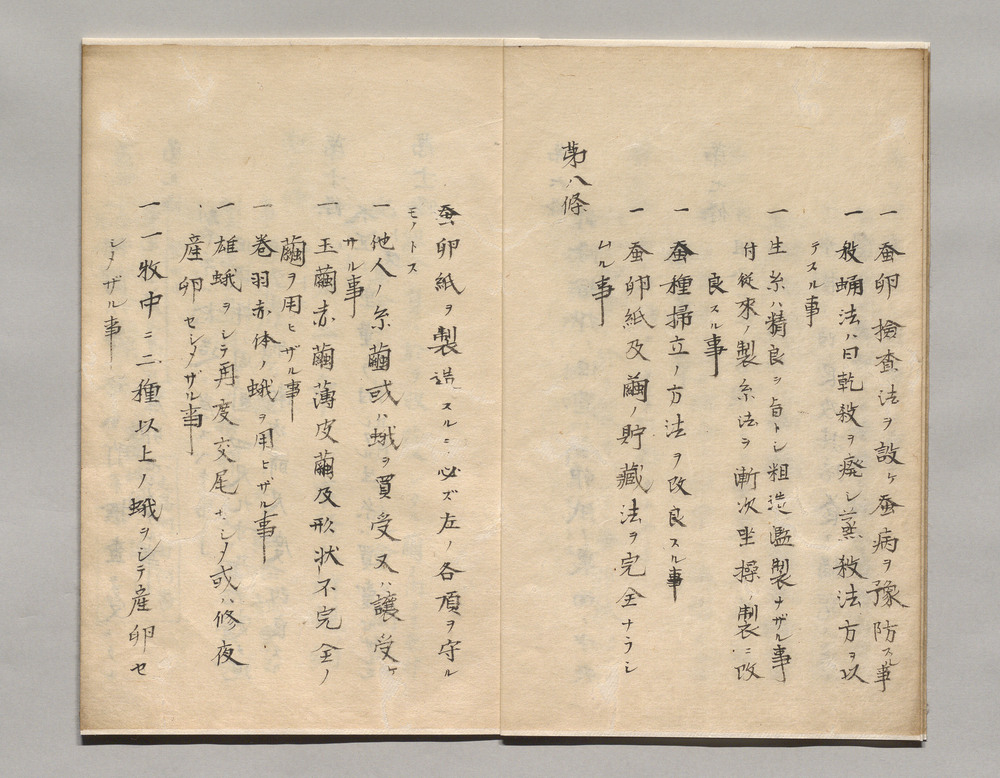 一 蚕卵検査法ヲ設ケ蚕病ヲ豫防スル事
一 殺蛹法ハ日乾殺ヲ廃シ蒸殺法方ヲ以
テスル事
一 生糸ハ精良ヲ旨トシ粗造濫製ナサザル事
付従来ノ製糸法ヲ漸次坐操ノ製ニ改
良スル事
一 蚕種掃立ノ方法ヲ改良スル事
一 蚕卵紙及繭ノ貯藏法ヲ完全ナラシ
ムル事
第八條
蚕卵紙ヲ製造スルニ必ズ左ノ各項ヲ守ル
モノトス
一 他人ノ糸繭或ハ蛾ヲ買受又ハ讓受ケ
サル事
一 玉繭赤繭薄皮繭及形状不完全ノ
繭ヲ用ヒザル事
一 巻羽赤体ノ蛾ヲ用ヒザル事
一 雄蛾ヲシテ再度交尾ナシメ或ハ修夜
産卵セシメザル事
一 一牧中ニ二種以上ノ蛾ヲシテ産卵セ
シメザル事